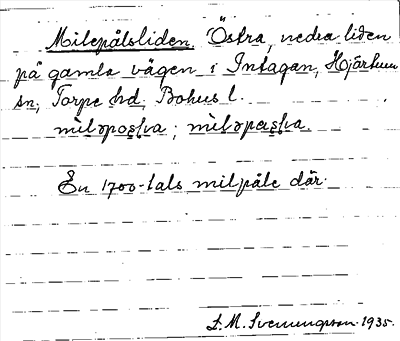 Milepålsliden. Östra, nedra liden
på gamla vägen i Intagan, Hjärtum
sn, Torpe hd, Bohus l.
En 1700-tals milpåle där.
S. M. Svenungsson. 1935.